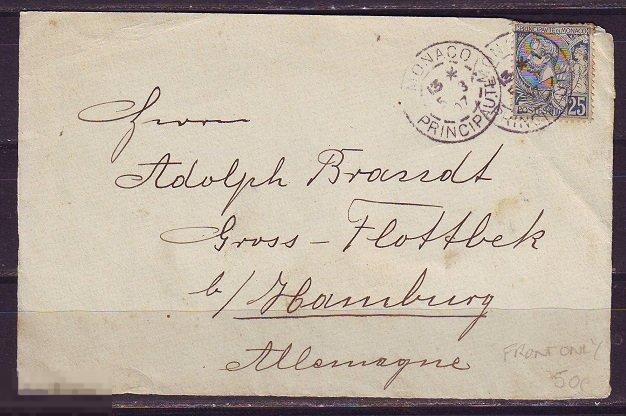 MONACO
PRINCIPAUTÉ
PRINCIPAUTÉ DE MONACO
25
Herrn
Adolph Brandt
Gross-Flottbek
b/ Hamburg
Allemagne
FRONT ONLY
50c